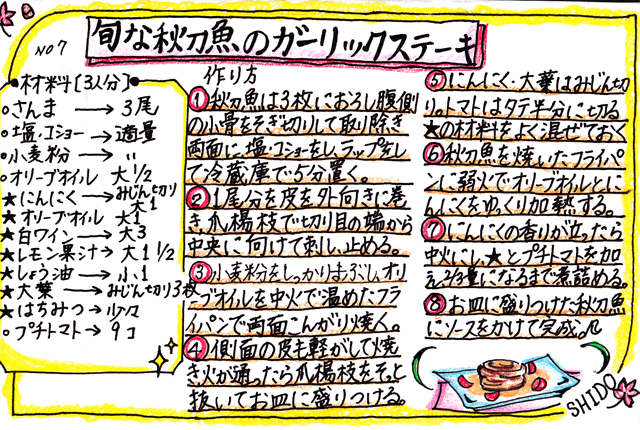 NO7
旬な秋刀魚のガーリックステーキ
材料〔3人分〕
○さんま→3尾
○塩・コショー→適量
○小麦粉→〃
○オリーブオイル 大1/2
★にんにく→みじん切り
大1
★オリーブオイル 大1
★白ワイン→大3
★レモン果汁→大1 1/2
★しょう油→小1
★大葉→みじん切り3枚
★はちみつ→少々
○プチトマト→9コ
作り方
①秋刀魚は3枚におろし腹側
の小骨をそぎ切りして取り除き
両面に、塩・コショーをし、ラップをし
て冷蔵庫で15分置く。
②1尾分を皮を外向きに巻
き爪楊枝で切り目の端から
中央に向けて刺し、止める。
③小麦粉をしっかりまぶし、オリ
ーブオイルを中火で温めたフラ
イパンで両面こんがり焼く。
④側面の皮も軽がして焼
き火が通ったら爪楊枝をそっと
抜いてお皿に盛りつける。
⑤にんにく・大葉はみじん切
り。トマトはタテ半分に切る
★の材料をよく混ぜておく
⑥秋刀魚を焼いたフライパ
ンに弱火でオリーブオイルとに
んにくをゆっくり加熱する。
⑦にんにくの香りが立ったら
中火にし、★とプチトマトを加
え、2/3量になるまで煮詰める。
⑧お皿に盛りつけた秋刀魚
にソースをかけて完成。
SHIDO